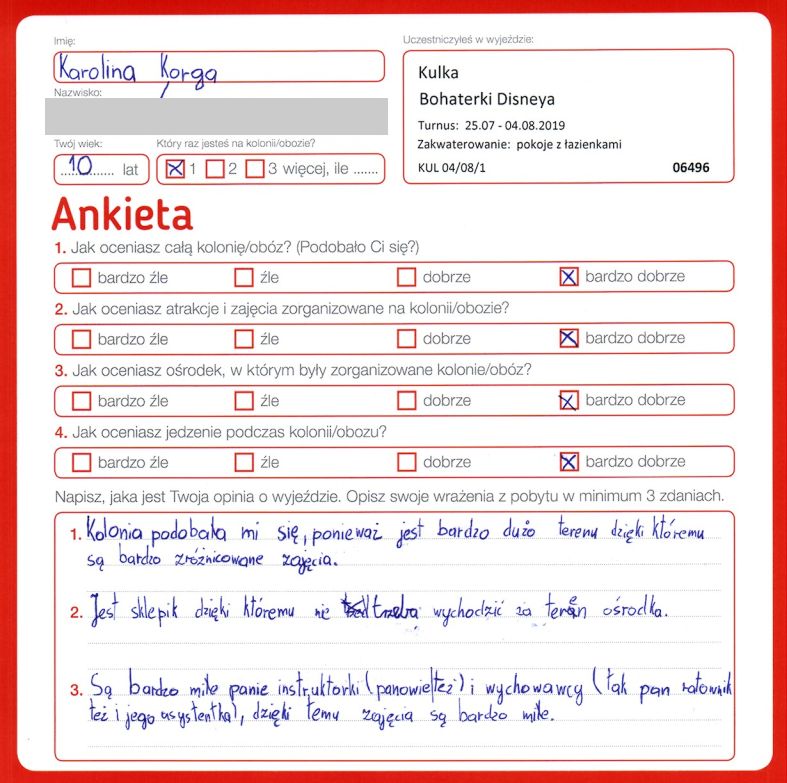 Imię:
Karolina Korga
Nazwisko:
Twój wiek:
10 lat
Który raz jesteś na kolonii/obozie?
1 2 3 więcej, ile .......
Uczestniczyłeś w wyjeździe:
Kulka
Bohaterki Disneya
Turnus: 25.07 - 04.08.2019
Zakwaterowanie: pokoje z łazienkami
KUL 04/08/1 06496
Ankieta
1. Jak oceniasz całą kolonię/obóz? (Podobało Ci się?)
bardzo źle źle dobrze bardzo dobrze
2. Jak oceniasz atrakcje i zajęcia zorganizowane na kolonii/obozie?
bardzo źle źle dobrze bardzo dobrze
3. Jak oceniasz ośrodek, w którym były zorganizowane kolonie/obóz?
bardzo źle źle dobrze bardzo dobrze
4. Jak oceniasz jedzenie podczas kolonii/obozu?
bardzo źle źle dobrze bardzo dobrze
Napisz, jaka jest Twoja opinia o wyjeździe. Opisz swoje wrażenia z pobytu w minimum 3 zdaniach.
1. Kolonia podobała mi się, ponieważ jest bardzo dużo terenu dzięki któremu
są bardzo zróżnicowane zajęcia.
2. Jest sklepik dzięki któremu nie trzeba wychodzić za teren ośrodka.
3. Są bardzo miłe panie instruktorki (panowie też) i wychowawcy (tak pan ratownik
też i jego asystentka), dzięki temu zajęcia są bardzo miłe.